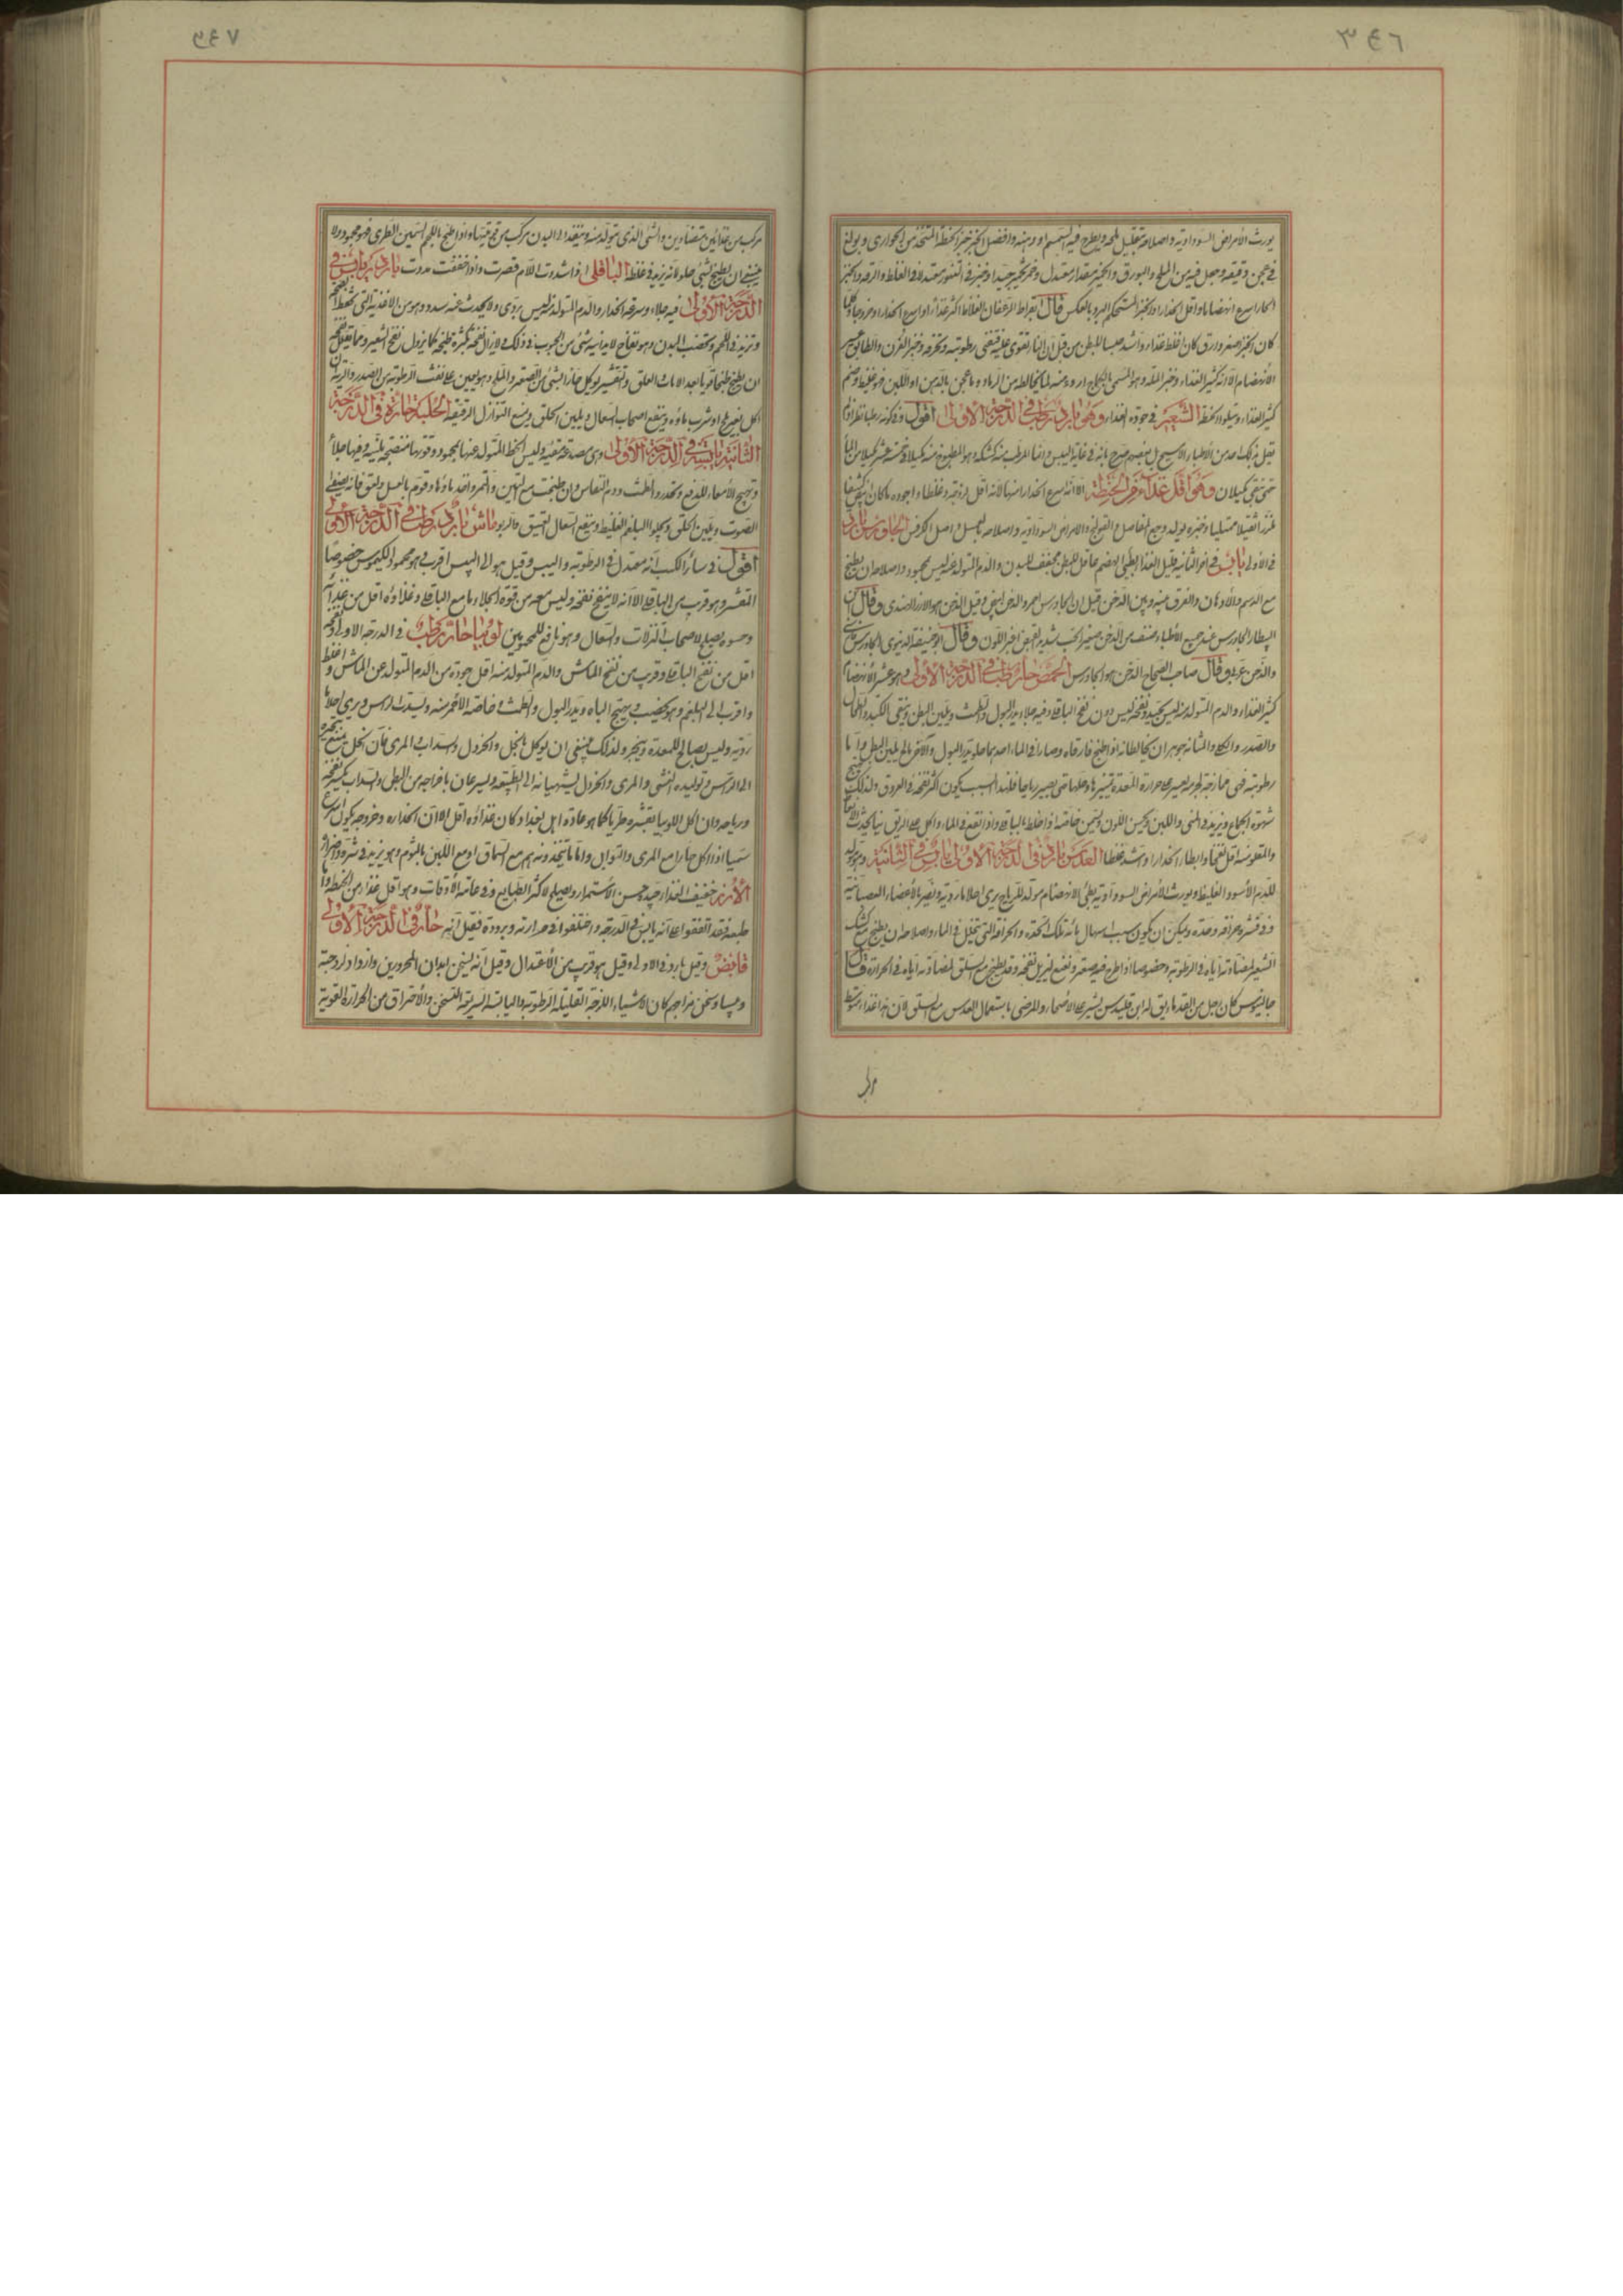 يورث الأمراض السوداوية واصلاحه بقليل ملح ويطرح فيه السمسم او دهنه وافضل الخبز خبز الحنطة المتخذ من الحواري وبولغ
في عجن دقيقه وجعل فيه من الملح والبورق والخمير بمقدار معتدل وخمر تخميرا جيدا وخبز في التنور معتدلا في الغلظ والرقة والخبز
الحار اسرع انهضاما واقل انحدارا والخبز المستحكم البرد بالعكس قال بقراط الرغفان الغلاظ اكثر غذاء واسرع انحدارا وخروجا وكلما
كان الخبز اصغر وارق كان اغلظ غذاء واشد حبسا للبطن من قبل ان النار تقوى عليه فتفنى رطوبته وتحرقه وخبز الفرن والطابق عسير
الانهضام الا انه كثير الغذاء وخبز الملة وهو المسمى بالكماج اردء منه لما يخالطه من الرماد وما عجن بالدهن او اللبن فهو غليظ وخم
كثير الغذاء ويتلوه الحنطة الشعير في جودة الغذاء وهو بارد رطب في الدرجة الاولى اقول وفي كونه رطبا نظر اذ لم
يقل بذلك احد من الأطباء بل بعضهم صرح بانه في غاية اليبس وانما المرطب منه كشكه وهو المطبوخ منه كيلا في خمسة عشر كيلا من الماء
حتى يبقى كيلان وهو اقل غذاء من الحنطة الا انه اسرع انحدارا منها لانه اقل لزوجة وغلظا واجوده ما كان ابيض كثيفا
رزينا ثقيلا ممتليا وخبزه يولد وجع المفاصل والقولنج والامراض السوداوية واصلاحه بالعسل واصل الكرفس الجاورس بارد
في الاولى يابس في اخر الثانية قليل الغذاء بطئ الهضم عاقل للبطن مجفف للبدن والدم المتولد عنه ليس بمحمود واصلاحه ان يطبخ
مع الدسم والادهان والفرق بينه وبين الدخن قيل ان الجاورس احمر والدخن ابيض وقيل الدخن هو الارز الهندى وقال ابن
البيطار الجاورس عند جميع الأطباء صنف من الدخن صغير الحب شديد القبض اغبر اللون وقال ابو حنيفة الدينوري الجاورس فارسى
والدخن عربى وقال صاحب الصحاح الدخن هو الجاورس الحمص حار رطب في الدرجة الاولى وهو عسر الأنهضام
كثير الغذاء والدم المتولد منه ليس بجيد ونفخه ليس دون نفخ الباقلا وفيه جلاء يدر البول والطمث ويلين البطن وينقى الكبد والطحال
والصدر والكلى والمثانة جوهران يخالطانه اذا طبخ فارقاه وصارا في الماء احدهما حلو يدر البول والآخر مالح يلين البطن واما
رطوبته فهى ممازجة لجرمه يعسر على حرارة المعدة تمييزها وحلها حتى يصير رياحا فلهذا السبب يكون اكثر نفخه في العروق ولذلك يهيج
شهوة الجماع ويزيد في المنى واللبن ويحسن اللون ويسمن خاصة اذا خلط بالباقلا واذا نقع في الماء واكل على الريق نيا يحدث الانعاظ
والمقلو منه اقل نفخا وابطا انحدارا واشد غلظا العدس بارد في الدرجة الاولى يابس في الثانية وهو مولد
للدم الأسود الغليظ ويورث الأمراض السوداوية بطئ الانهضام مولد للرياح يرى احلاما ردية ويضر بالأعضاء العصبانية
وفي قشره حرافة وحده ويمكن ان يكون سبب اسهال مائه تلك الحدة والحرافة التى تتحلل في الماء واصلاحه ان يطبخ مع كشك
الشعير لمضادته اياه في الرطوبة وخصوصا اذا طرح فيه صعتر ونعنع ليزيل نفخه وقد يطبخ مع سلق لمضادته اياه في الحرارة قال
جالينوس كان رجل من القدماء يق له ابن قليدس يشير على الأصحاء والمرضى باستعمال العدس مع السلق لان هذا غذاء متوسط
مركب
مركب من غذائين متضادين والشئ الذى يتولد منه وينفذ الى البدن مركب من قوتيهما واذا طبخ باللحم السمين الطرى فهو محمود ولا
ينبغى ان يطبخ بشئ حلو لانه يزيد في غلظه الباقلى اذا شددت اللام قصرت واذا خففت مددت بارد يابس في
الدرجة الاولى فيه جلاء وسرعة انحدار والدم المتولد منه ليس بردى ولا يحدث عنه سدد وهو من الاغذية التى تحفظ الصحة
وتزيد في اللحم وتخصب البدن وهو نفاخ لا يدانيه شئ من الحبوب في ذلك ولا يزال نفخه بكثرة طبخه كما يزول نفخ الشعير ومما يقلل نفخه
ان يطبخ طبخا قويا بعد الانبات العلق والتقشير ويوكل حارا بشئ من الصعتر والملح وهو يعين على نفث الرطوبة من الصدر والرية ان
اكل بغير ملح او شرب ماؤه وينفع اصحاب السعال ويلين الحلق ويمنع النوازل الرقيقة الحلبة حارة في الدرجة
الثانية يابسة في الدرجة الأولى وهى مصدعة مغثية وليس الخلط المتولد عنها بمحمود وقوتها منضجة ملينة وفيها جلاء
وتهيج الأمعاء للدفع وتحدر الطمث ودم النفاس وان طبخت مع التين والتمر واخذ ماؤها وقوم بالعسل ولعق فانه يصفى
الصوت ويلين الحلق ويجلو البلغم الغليظ وينفع السعال العتيق والربو ماش بارد رطب في الدرجة الاولى
اقول في سائر الكتب انه معتدل في الرطوبة واليبس وقيل هو الى اليبس اقرب وهو محمود الكيموس خصوصا
المقشر وهو قريب من الباقلا الا انه لا ينفخ نفخه وليس معه من قوة الجلاء ما مع الباقلا وغذاؤه اقل من غذائه
وحسوه يصلح لاصحاب النزلات والسعال وهو نافع للمحمومين لوبيا حار رطب في الدرجة الاولى ونفخه
اقل من نفخ الباقلا وقريب من نفخ الماش والدم المتولد منه اقل جودة من الدم المتولد عن الماش واغلظ
واقرب الى البلغم وهو يخصب ويهيج الباه ويدر البول والطمث وخاصة الأحمر منه ويسدر الراس ويرى احلاما
ردية وليس بصالح للمعدة ويبخر ولذلك ينبغى ان يوكل بالخل والخردل والسداب والمرى فان الخل يمنع تبخيره
الى الراس وتوليده الغشى والمرى والخردل يشهيانه الى الطبيعة ويسرعان باخراجه من البطن والسداب يكسر نفخه
ورياحه وان اكل اللوبيا بقشره طريا كما هو عادة اهل بغداد كان غذاؤه اقل الا ان انحداره وخروجه يكون اسرع
سيما اذا اكل حارا مع المرى والتوابل واما ما يتخذونه هم مع السماق او مع اللبن بالثوم وهو يزيد في شره واضراره
الأرز خفيف الغذاء جيد حسن الأستمراء ويصلح لاكثر الطبايع وفى عامة الأوقات وهو اقل غذاء من الحنطة واما
طبعه فقد اتفقوا على انه يابس في الدرجة واختلفوا في حرارته وبرودته فقيل انه حار في الدرجة الاولى
قابض وقيل بارد في الاولى وقيل هو قريب من الأعتدال وقيل انه يسخن ابدان المحرورين وازداد لزوجته
ويبسا وسخن مزاجهم كان الاشياء اللزجة القليلة الرطوبة واليابسة السريعة التسخن والأحتراق من الحرارة القوية